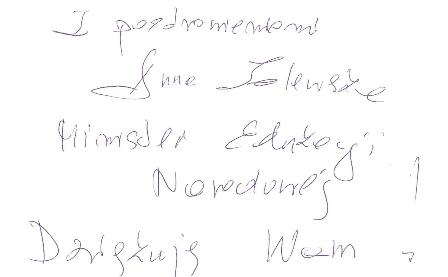 Z pozdrowieniami
Anna Zalewska
Minister Edukacji
Narodowej
Dziękuję Wam